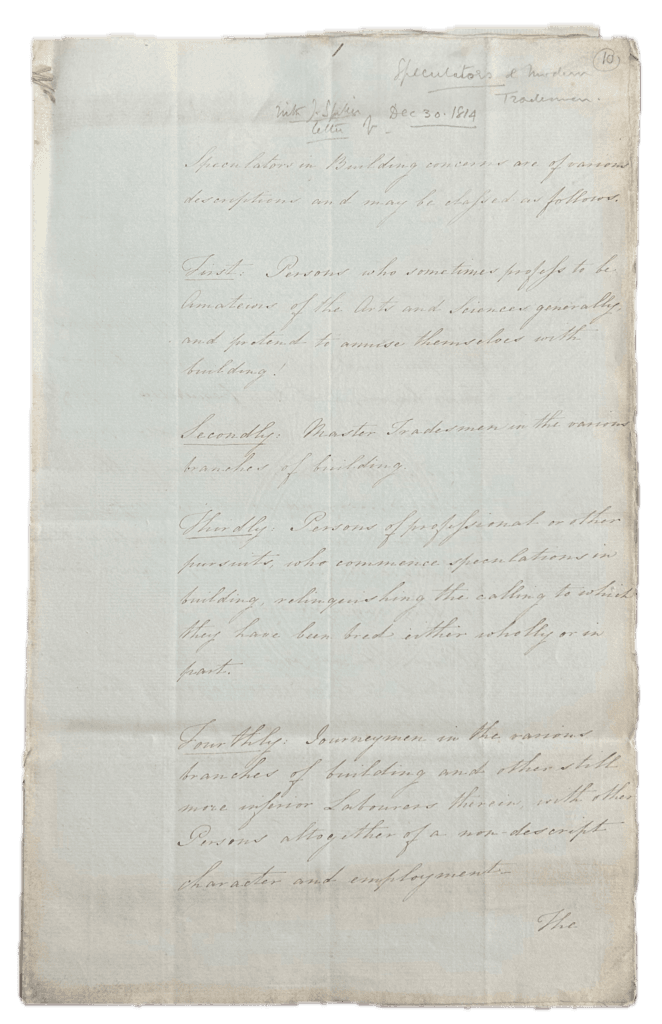 1
10
Speculators & Modern
Tradesman.
letter Dec 30. 1814
Speculators in Building concerns are of various
descriptions and may be classed as follows.
First: Persons who sometimes profess to be
Amateurs of the Arts and Sciences generally,
and pretend to amuse themselves with
building!
Secondly: Master Tradesmen in the various
branches of building.
Thirdly: Persons of professional or other
pursuits, who commence speculations in
building, relinquishing the calling to which
they have been bred either wholly or in
part.
Fourthly: Journeymen in the various
branches of building and other still
more inferior Labourers therein, with other
Persons altogether of a non-descript
character and employment—
The